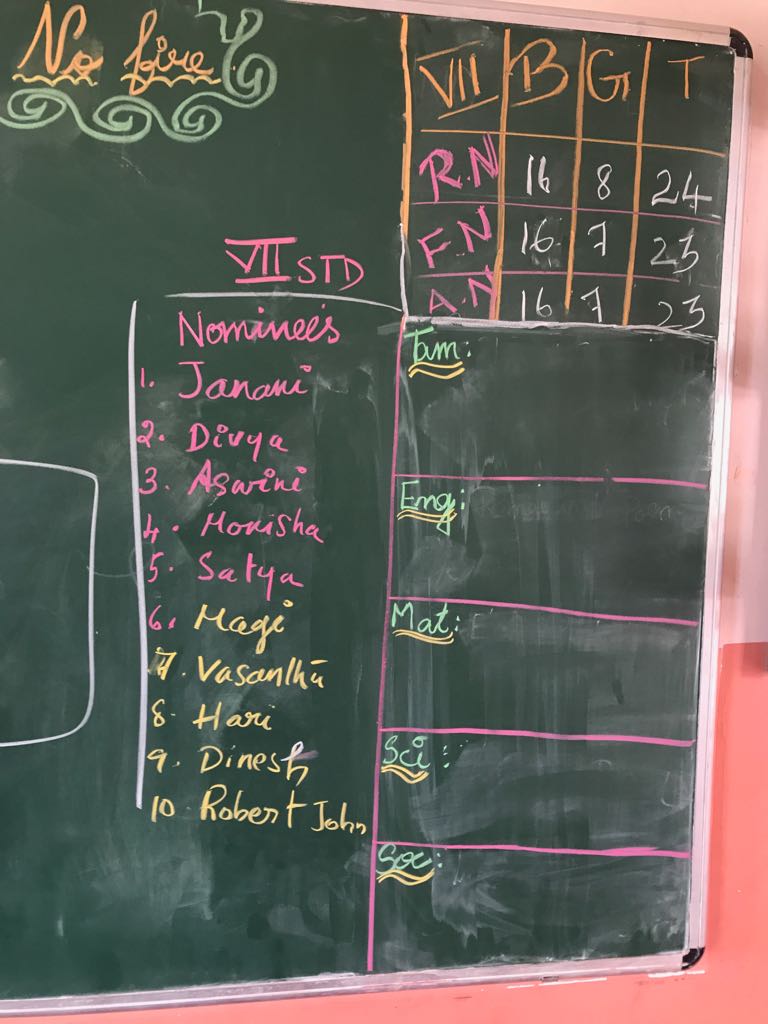 No fire
VII B G T
R.N 16 8 24
F.N 16 7 23
A.N 16 7 23
VII STD
Nominees
1. Janani
2. Divya
3. Aswini
4. Monisha
5. Satya
6. Magi
7. Vasanthi
8. Hari
9. Dinesh
10 Robert John
Tam:
Eng:
Mat:
Sci:
Soc: